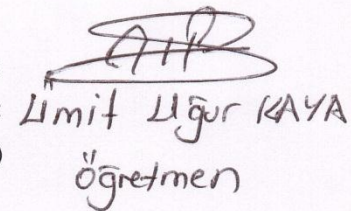 Ümit Uğur KAYA
Öğretmen